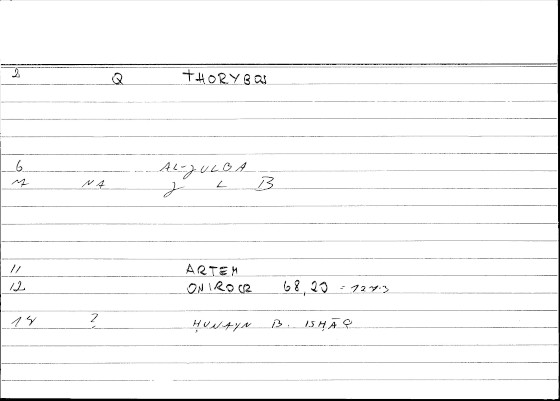 2 Q THORYBOS
6 AL-JULBA
M NA J L B
11 ARTEM
12 ONIROCR 68,20 = 127.3
18 ? ḤUNAYN B. ISḤĀQ